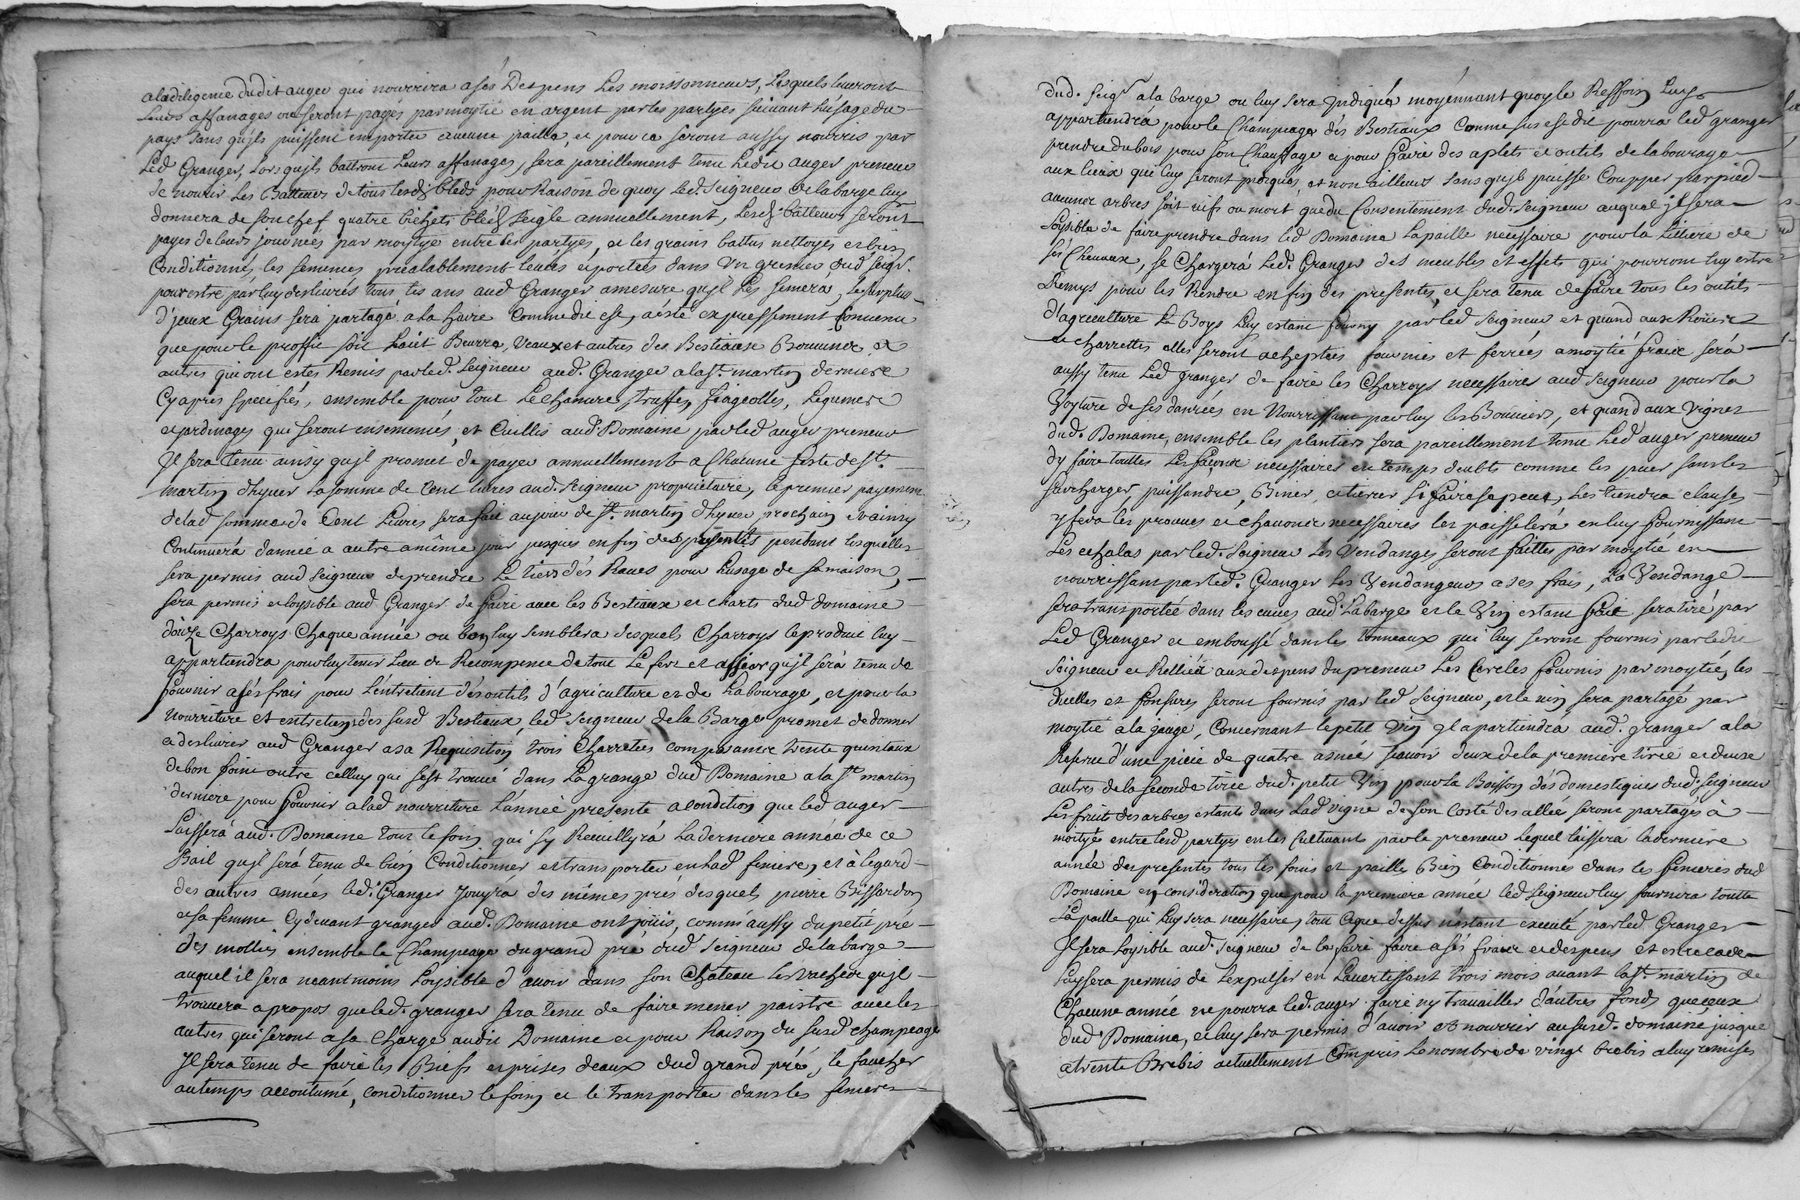 aladiligence dudit auger qui nourrira a ses Despens Les moissonneurs, Lesquels leveront
Leurs affanages ou seront payés par moytié en argent par les partyes suivant l'usage du
pays sans qu'ils puissent emporter aucune paille, et pour ce seront aussy nourris par
Led Granger, Lorsqu'ils battront Leurs affanages, sera pareillement tenu Ledit auger preneur
de nourir Les Batteurs de tous lesd. bleds pour Raison de quoy Led. Seigneur de la barge luy
donnera de son chef quatre bichets bled seigle annuellement, Lesd. batteurs seront
payés de leurs journées par moytyé entre les partyes, et les grains battus nettoyés et bien
Conditionnés, les semences préalablement levées et portées dans un grenier dud. seigr.
pour estre par luy deslivrés tous les ans aud Granger a mesure qu'jl Les semera, le surplus
d'jceux Grains sera partagé a la haire Comme dit est, a esté expressement Convenu
que pour le proffit soit Lait Beurre, Veaux et autres des Bestiaux Bouvine et
autres qui ont estés Remis par led. Seigneur aud. Granger a la St. martin derniere
Cy apres spécifiés, ensemble pour tout Le chanvre, truffes, fiageolles, Legumes
et jardinages qui seront ensemencés, et Cuillis aud. Domaine par led auger preneur
Jl sera tenu ainsy qu'jl promet de payer annuellement a Chacune feste de St.
martin d'hyver La somme de Cent livres aud. seigneur propriétaire, le premier payement
de lad somme de Cent Livres sera fait au jour de St. martin d'hyver prochain et ainsy
Continuera d'année a autre a même jour jusques en fin des presentes pendant lesquelles
sera permis aud seigneur de prendre Le tiers des Raves pour l'usage de sa maison,
sera permis et loysible aud Granger de faire avec les Bestiaux et charts dud domaine
douze Charroys Chaque année ou bon luy semblera desquels Charroys le produit luy
appartiendra pour luy tenir Lieu de Recompense de tout Le fert et assier qu'jl sera tenu de
fournir a ses frais pour L'entretient des outils d'agriculture et de Labourage, et pour la
nourriture et entretien des susd Bestiaux, led. seigneur de la Barge promet de donner
et deslivrer aud Granger a sa Requisition trois Charretées composant trente quintaux
de bon foint outre celluy qui s'est trouvé dans La grange dud Domaine a la St. martin
derniere pour fournir a lad nourriture L'année presente a condition que led auger
Laissera aud. Domaine tout le foin qui s'y Recuillyra La derniere année de ce
Bail qu'jl sera tenu de bien Conditionner et transporter en lad finiere, et à l'egard
des autres années led. Granger Jouyra des mêmes prés desquels pierre Brissardon
et sa femme Cydevant granger aud. Domaine ont jouis, comm'aussy du petit pré
des mollies ensemble le Champeage du grand pré dud seigneur de la barge
auquel il sera neantmoins Loysible d'avoir dans son Château les vaches qu'jl
trouvera a propos que led. granger sera tenu de faire mener paistre avec les
autres qui seront a sa charge audit Domaine et pour Raison du susd champeage
Jl sera tenu de faire les Biefs et prises d'eaux dud grand pré, le faucher
au temps accoutumé, conditionner le foin et le transporter dans les finieres
dud. Seigr. a la barge ou luy sera jndiqué moyennant quoy le Ressoin luy
appartiendra pour le Champeage des Bestiaux Comme sus est dit pourra led granger
prendre du bois pour son Chauffage et pour faire des aplets et outils de labourage
aux lieux qui luy seront marqués, et non ailleurs sans qu'jl puisse Coupper par pied
aucuns arbres soit vifs ou mort que du Consentement dud. seigneur auquel jl sera
Loysible de faire prendre dans led Domaine La paille necessaire pour la Littiere de
ses Chevaux, se Chargera Led. Granger des meubles et effets qui pourront luy estre
Remys pour les Rendre en fin des presentes, et sera tenu de faire tous les outils
d'agriculture Le Boys Luy estant fourny par led seigneur et quand aux Roues
et charrettes elles seront acheptées fournies et ferrées a moytié fraix, sera
aussy tenu Led granger de faire les Charroys necessaires aud seigneur pour la
Voyture de ses danrées en Nourrissant par luy les Bouviers, et quand aux Vignes
dud. Domaine, ensemble les plantiers sera pareillement tenu Led auger preneur
d'y faire touttes Les façons necessaires en temps deubts comme les puer sans les
surcharger, puissandre, Biner, et tierser si faire se peut, Les tiendra clauses
y fera les provins et chavons necessaires les paisselera en luy fournissant
Les echalas par led. seigneur Les Vendanges seront faittes par moytié en
nourrissant par led. Granger Les Vendangeurs a ses frais, La Vendange
sera transportée dans les cuves aud. Labarge et le Vin estant fait sera tiré par
Led Granger et emboussé dans les tonneaux qui luy seront fournis par ledit
seigneur et Relliés aux despens du preneur Les Cercles fournis par moytié, les
Duelles et fonsures seront fournis par led seigneur, et le vin sera partagé par
moytié a la jauge, Concernant le petit vin jl apartiendra aud. granger a la
Reserve d'une piece de quatre asnée sçavoir deux de la premiere tirée et deux
autres de la seconde tirée dud. petit Vin pour la Boisson des domestiques dud. seigneur
Les fruit des arbres estants dans Lad vigne de son Costé des allée seront partagés à
moytyé entre lesd partyes en les Cultivant par le preneur Lequel laissera la derniere
année des presentes tous les foins et pailles Bien Conditionnés dans les finieres dud
Domaine en consideration que pour la premiere année led seigneur luy fournira toute
La paille qui luy sera necessaire, tout ceque dessus n'estant executé par led Granger
Jl sera loysible aud. seigneur de le faire faire a ses fraix et despens et en ce cas
luy sera permis de l'expulser en L'avertissant trois mois avant la St. martin de
Chacune année ne pourra led. auger faire ny travailler d'autres fonds que ceux
dud Domaine, et luy sera permis d'avoir et nourrir au susd. domaine jusque
a trente Brebis actuellement Compris Le nombre de vingt brebis a luy remises